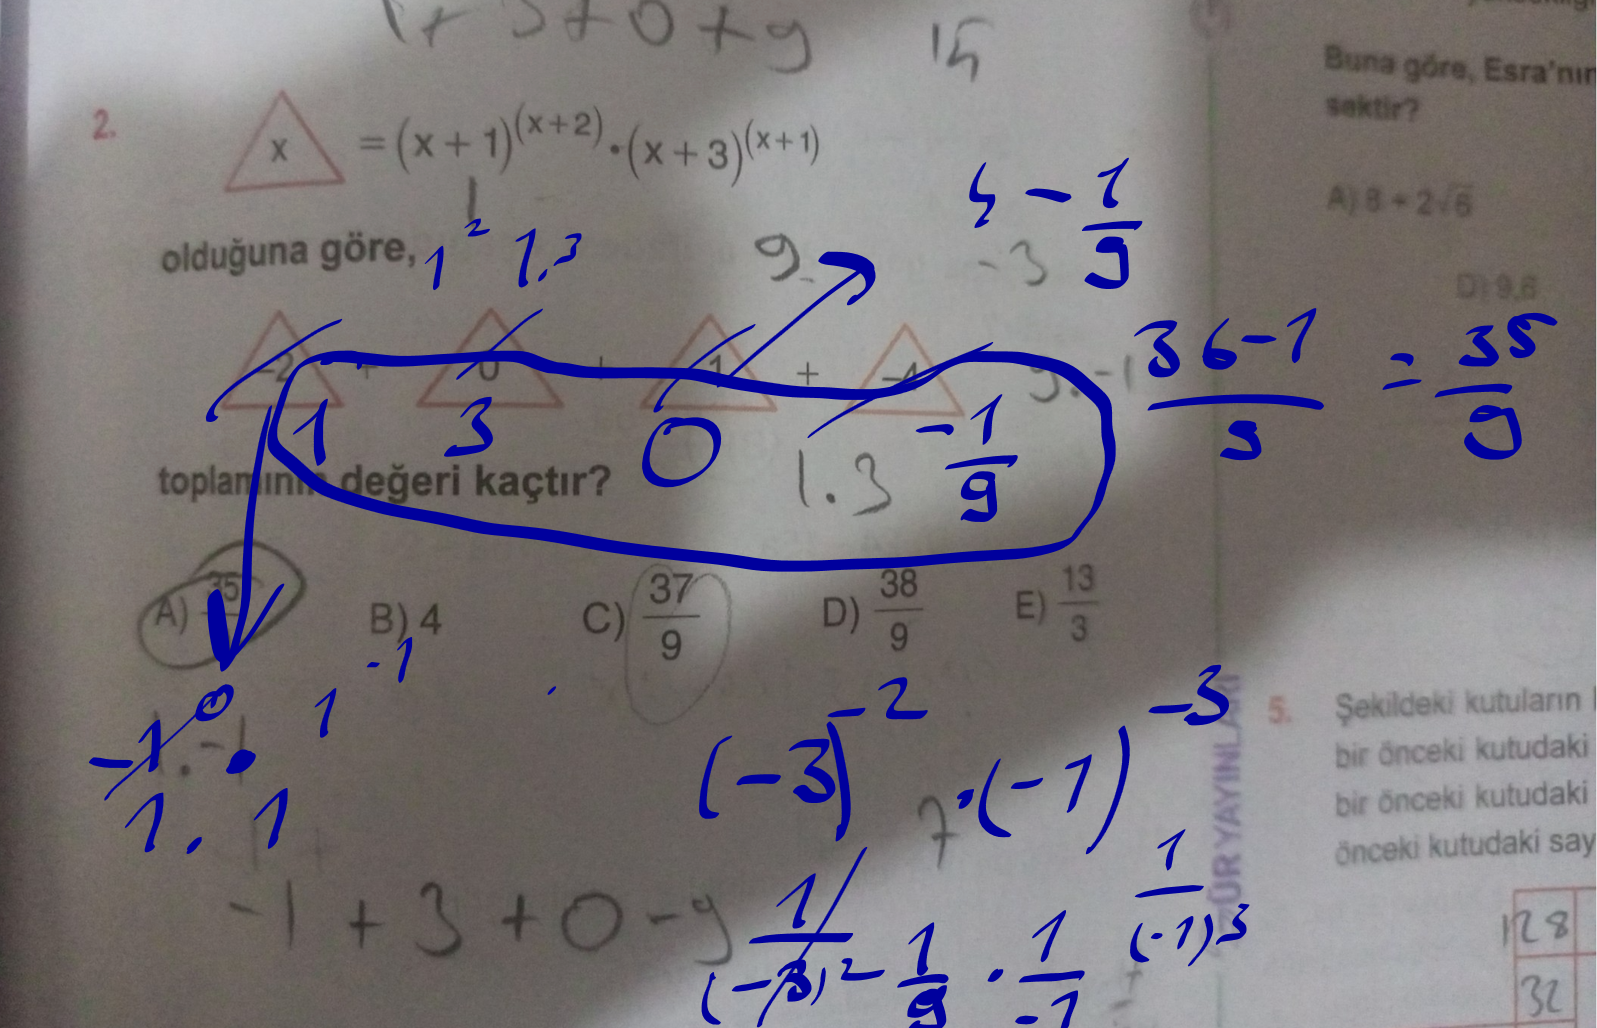 1+3+0+9 15
2.
x = (x + 1)^(x+2) · (x + 3)^(x+1)
1
olduğuna göre, 1² 1.3
9
-3
-2 + 0 + -1 + -4
9.-1
1 3 0 -1/9
1.3
toplamının değeri kaçtır?
A) 35 B) 4 C) 37/9 D) 38/9 E) 13/3
-1⁰ . 1⁻¹
1.-1
1 . 1
(-3)⁻² . (-1)⁻³
7
-1 + 3 + 0 - 9
1/(-3)² 1/9 . 1/-1
1/(-1)³
- 1/9
36-1/9 = 35/9
Buna göre, Esra'nın
sektir?
A) 8 + 2√6
D) 9,6
ÜR YAYINLARI
5. Şekildeki kutuların
bir önceki kutudaki
bir önceki kutudaki
önceki kutudaki say
128
32